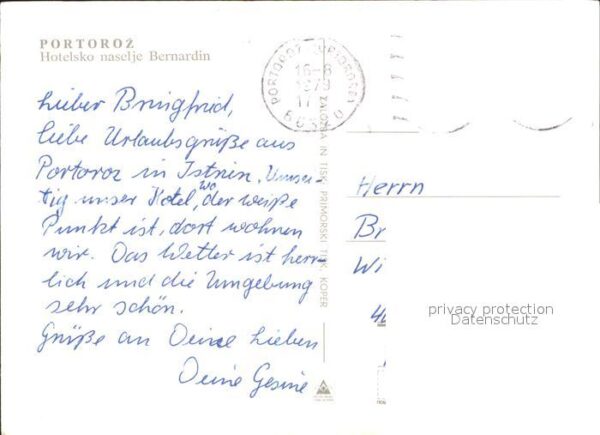 PORTOROŽ
Hotelsko naselje Bernardin
Lieber Bringfried,
liebe Urlaubsgrüße aus
Portoroz in Istrien. Umsei-
tig unser Hotel, Wo der weiße
Punkt ist, dort wohnen
wir. Das Wetter ist herr-
lich und die Umgebung
sehr schön.
Grüße an Deine Lieben
Deine Gesine
PORTOROŽ
16-8
1979
17
ZALOŽBA IN TISK PRIMORSKI TISK, KOPER
Herrn
Br
Wi
privacy protection
Datenschutz